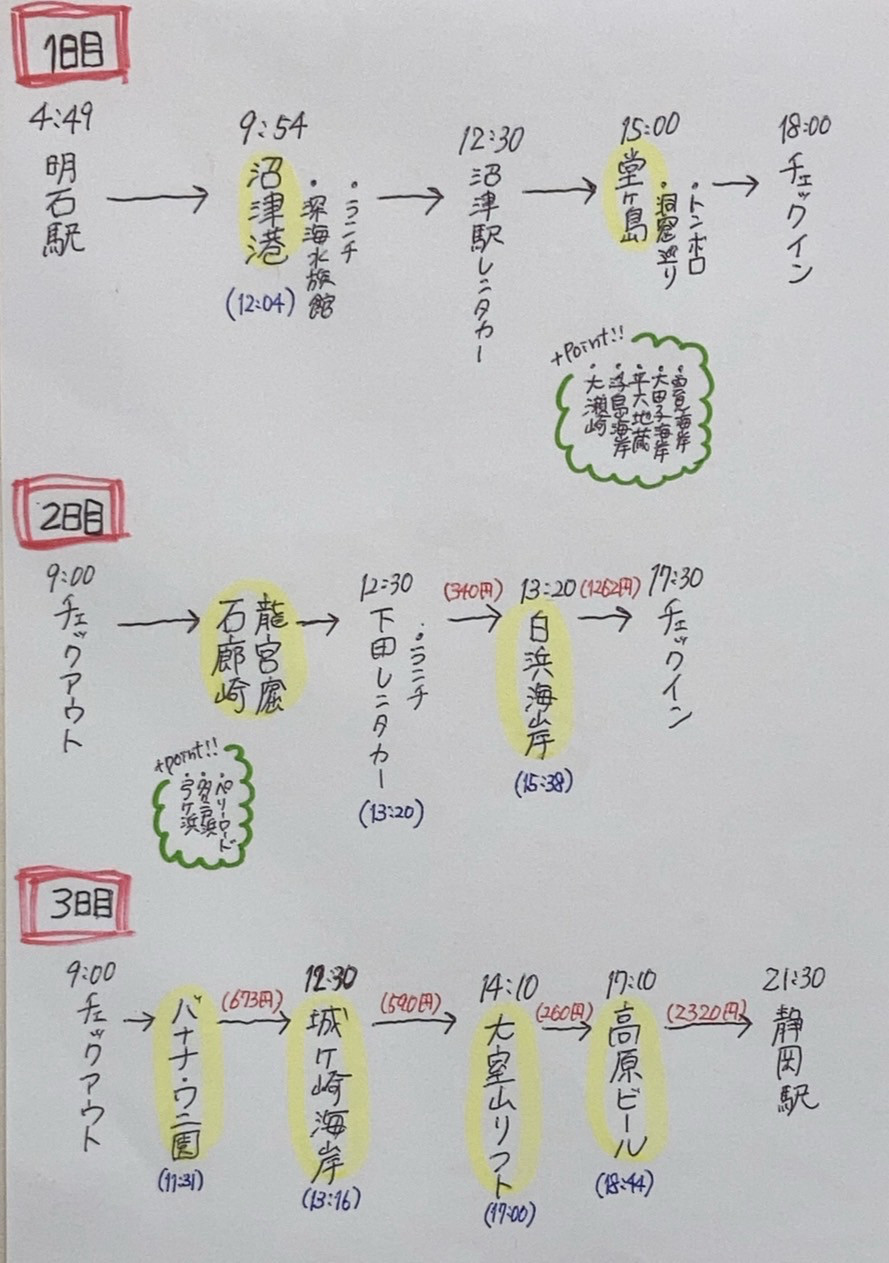 1日目
4:49
明石駅
9:54
沼津港
・深海水族館
・ランチ
(12:04)
12:30
沼津駅レンタカー
15:00
堂ヶ島
・洞窟巡り
・トンボロ
18:00
チェックイン
+Point!!
・雲見海岸
・大田子海岸
・平六地蔵
・浮島海岸
・大瀬崎
2日目
9:00
チェックアウト
龍宮窟
石廊崎
+point!!
・ペリーロード
・多々戸浜
・弓ヶ浜
12:30
下田レンタカー
・ランチ
(13:20)
(340円)
13:20
白浜海岸
(15:38)
(1262円)
17:30
チェックイン
3日目
9:00
チェックアウト
バナナ・ワニ園
(11:31)
(673円)
12:30
城ヶ崎海岸
(13:16)
(590円)
14:10
大室山リフト
(17:00)
(260円)
17:10
高原ビール
(18:44)
(2320円)
21:30
静岡駅